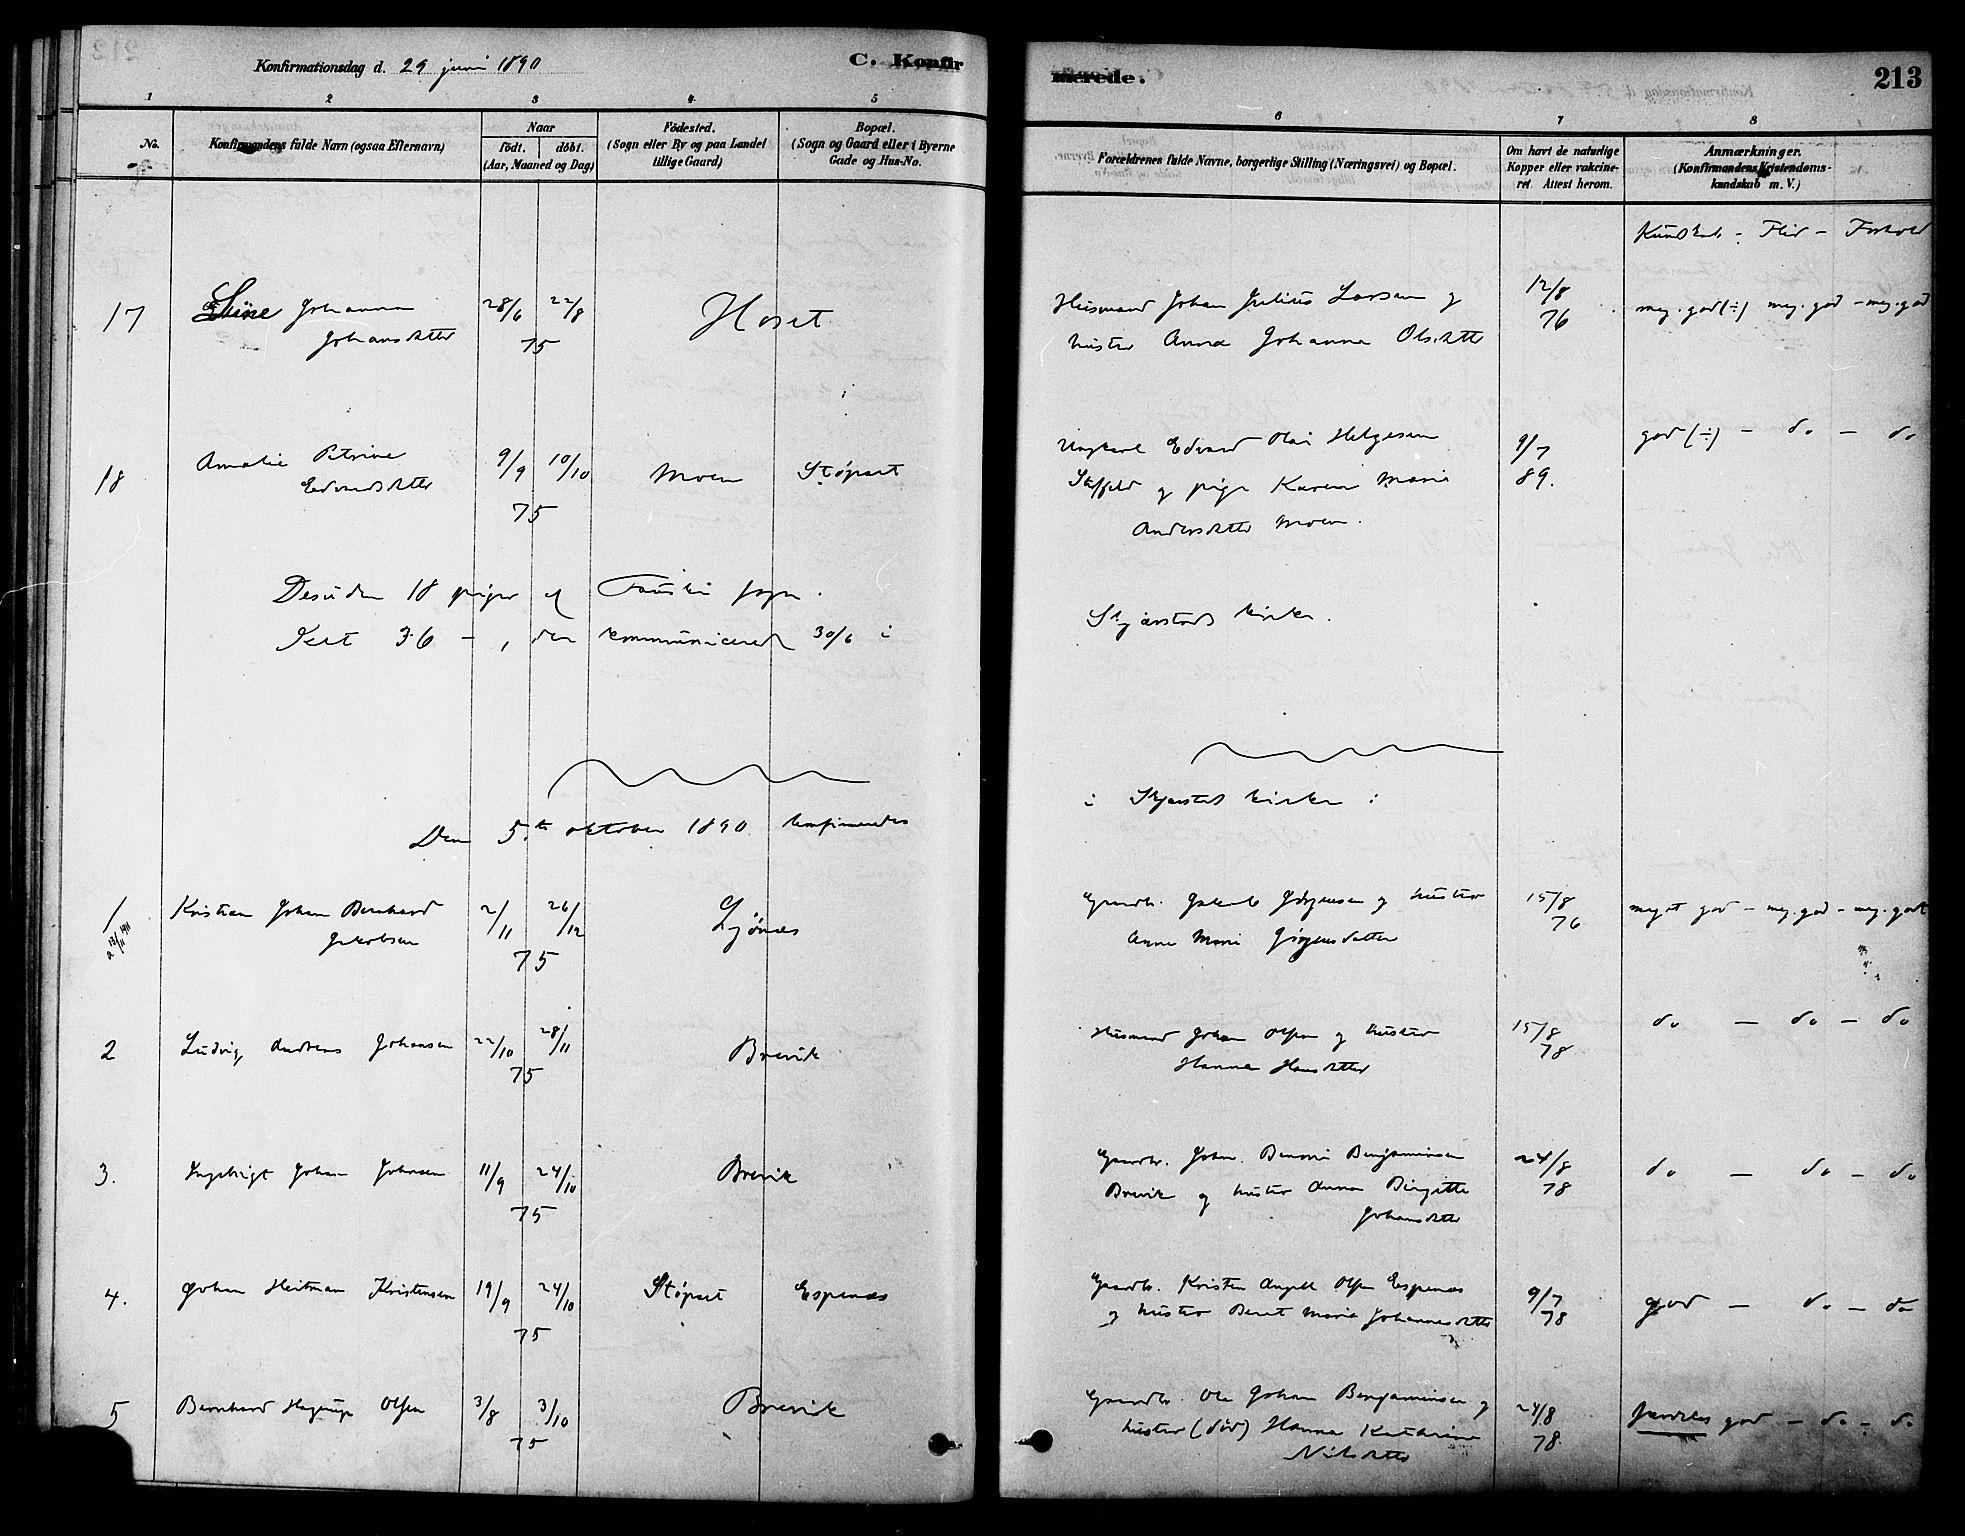 Konfirmationsdag d. 29 juni 1890
C. Konfir
merede.
213
1 2 3 4 5 6 7 8
No.
Konfirmandens fulde Navn (ogsaa Efternavn)
Naar
födt. döbt.
(Aar, Maaned og Dag)
Födested.
(Sogn eller By og paa Landet
tillige Gaard)
Bopæl.
(Sogn og Gaard eller i Byerne
Gade og Hus-No.
Forældrenes fulde Navne, borgerlige Stilling (Næringsvei) og Bopæl.
Om havt de naturlige
Kopper eller vakcine-
ret. Attest herom.
Anmærkninger.
(Konfirmandens Kristendoms-
kundskab m. V.)
Kundskab - Flid - Forhold
17 Johanna
Johansdatter
28/6 22/8
75
Hoset
Husmand Johan Julius Larsen og
hustru Anna Johanna Olsdatter
12/8
76
meg. god (÷) meg. god - meg. god
18 Amalie Petrine
Edvardsdatter
9/9 10/10
75
Moen
Støpset
Ungkarl Edvard Olai Helgesen
og pige Karen Marie
Andersdatter Moen.
9/7
89.
god (÷) - do - do
Desuden 18 piger af Fauske sogn.
Ialt 36 - , der kommunicerede 30/6 i
Skjerstads kirke.
Den 5.te oktober 1890 konfirmeredes
i Skjerstad kirke :
1 Kristian Johan Bernhard
Jakobsen
2/11 26/12
75
Ljønæs
Gaardbr. Jakob Jørgensen og hustru
Anne Marie Jørgensdatter
15/8
76
meget god - meg. god - meg. godt
2 Ludvig Andreas Johansen
22/10 28/11
75
Brevik
Husmand Johan Olsen og hustru
Hanna Hansdatter
15/8
78
do - do - do
3. Ingebrigt Johan Johnsen
11/9 24/10
75
Brevik
Gaardbr. John Benoni Benjaminsen
Brevik og hustru Anna Birgitte
Johansdatter
24/8
78
do - do - do
4. Johan Heitman Kristensen
19/9 24/10
75
Støpset
Espenæs
Gaardbr. Kristen Angell Olsen Espenæs
og hustru Beret Maria Johannesdatter
9/7
78
god - do - do
5 Bernhard Hagerup Olsen
3/8 3/10
75
Brevik
Gaardbr. Ole Johan Benjaminsen og
hustru (død) Hanna Kathrine
Nilsdatter
24/8
78.
særdeles god - do - do